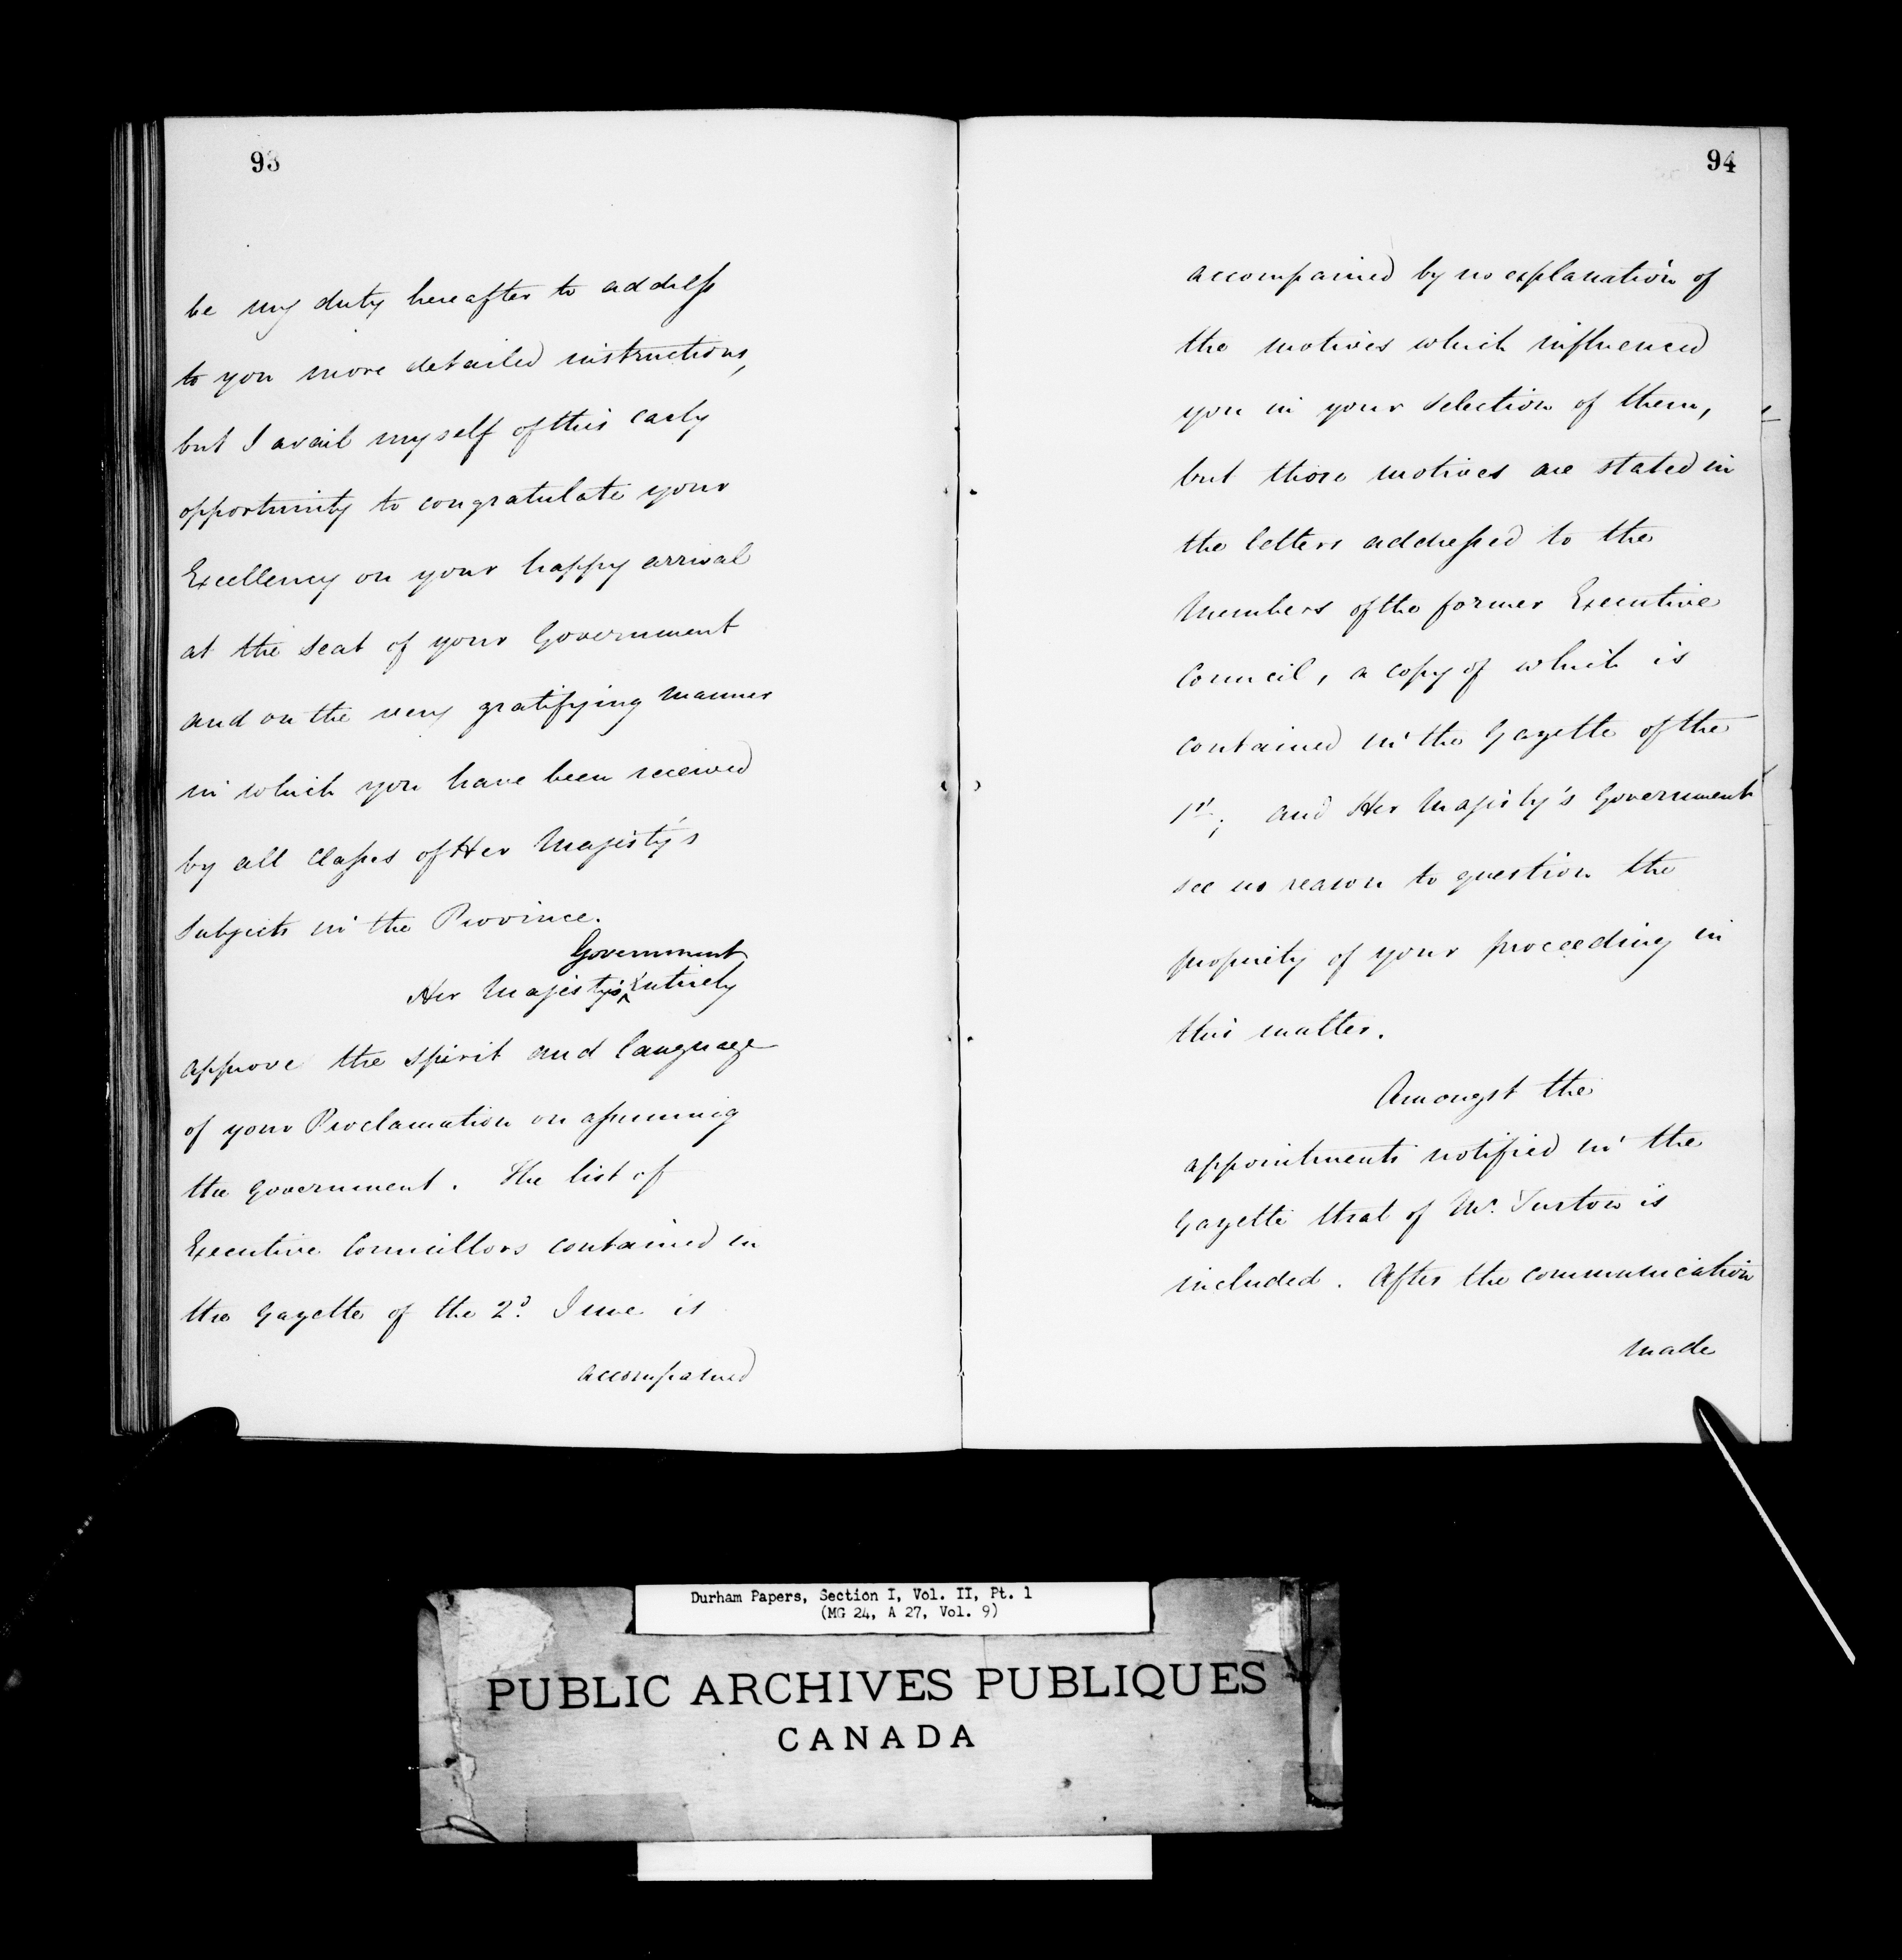 93
be my duty hereafter to address
to you more detailed instructions,
but I avail myself of this early
opportunity to congratulate your
Excellency on your happy arrival
at the seat of your Government
and on the very gratifying manner
in which you have been received
by all classes of Her Majesty's
subjects in the Province.
Government
Her Majesty's ^ entirely
approve the spirit and language
of your Proclamation on assuming
the Government. The list of
Executive Councillors contained in
the Gazette of the 2d. June is
accompanied
94
accompanied by no explanation of
the motives which influenced
you in your selection of them,
but those motives are stated in
the letters addressed to the
Members of the former Executive
Council, a copy of which is
contained in the Gazette of the
1st; and Her Majesty's Government
see no reason to question the
propriety of your proceeding in
this matter.
Amongst the
appointments notified in the
Gazette that of Mr. Turton is
included. After the communication
made
Durham Papers, Section I, Vol. II, Pt. 1
(MG 24, A 27, Vol. 9)
PUBLIC ARCHIVES PUBLIQUES
CANADA